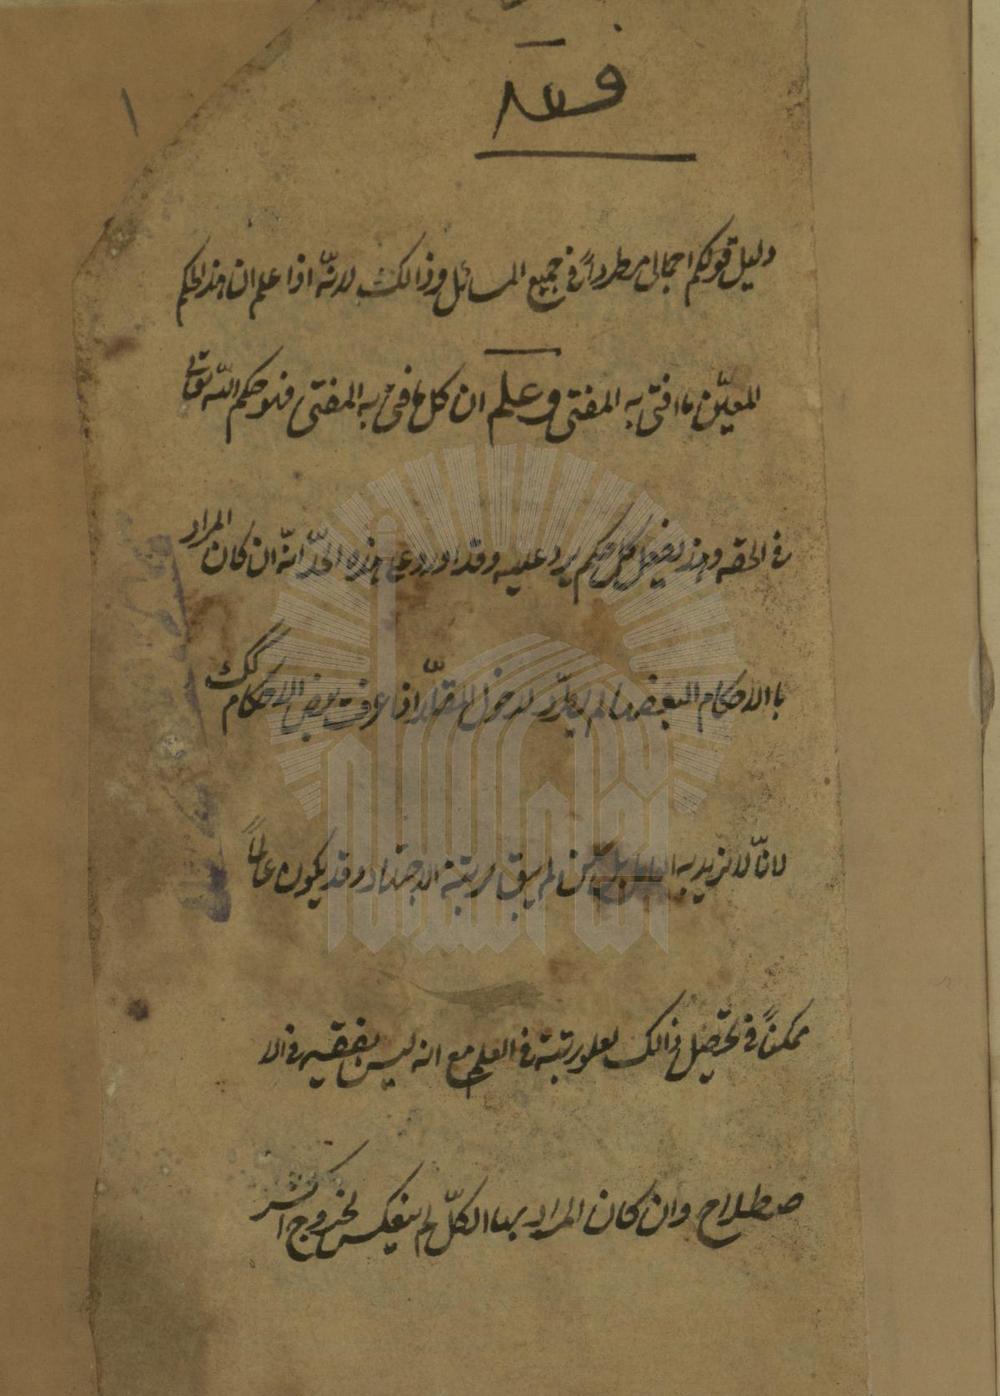 فقه
١
دليل قولكم اجمالى مطرداً فى جميع المسائل وذالك لانّه اذا علم ان هذ الحكم
المعيّن ما افتى به المفتى وعلم ان كل ما افتى به المفتى فهو حكم اللّه تعالى
فى حقه وهذ يفعل كل حكم يرد عليه وقد اورد على هذه الحدّ انّه ان كان المراد
باالاحكام البعض لم يطّرد لدخول المقلّد اذا عرف بعض الاحكام كك
لانّا لا نريد به من لم يبق مرتبة الاجتهاد وقد يكون عالماً
ممكناً فى تحصّيل ذالك لعلو رتبته فى العلم مع انه ليس بفقيه فى الا
صطلاح وان كان المراد بها الكلّ لم ينعكس لخروج اكثر